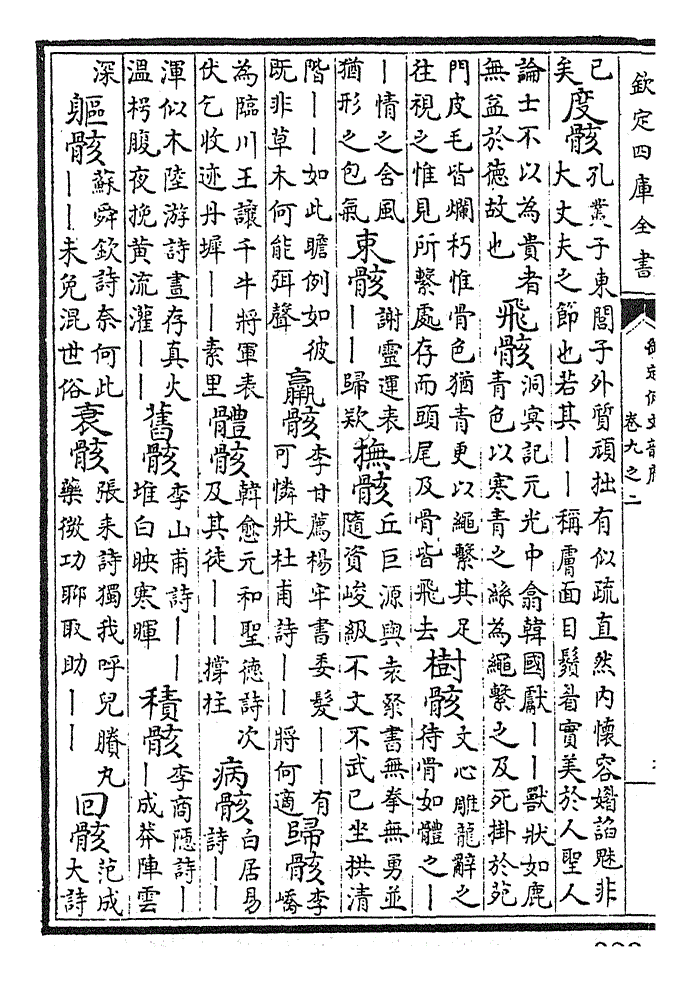 欽定四庫全書
御定佩文韻府
卷九之二
已
矣
度骸
孔叢子東閭子外質頑拙有似疏直然内懷容媚諂魅非
大丈夫之節也若其——稱膚面目鬚眉實美於人聖人
論士不以為貴者
無益於德故也
飛骸
洞冥記元光中翕韓國獻——獸狀如鹿
青色以寒青之絲為繩繫之及死掛於苑
門皮毛皆爛朽惟骨色猶青更以繩繫其足
往視之惟見所繫處存而頭尾及骨皆飛去
樹骸
文心雕龍辭之
待骨如體之—
—情之含風
猶形之包氣
束骸
謝靈運表
——歸欵
撫骸
丘巨源與袁粲書無拳無勇並
隨資峻級不文不武已坐拱清
階——如此瞻例如彼
既非草木何能弭聲
羸骸
李甘薦楊牢書委髮——有
可憐狀杜甫詩——將何適
歸骸
李
嶠
為臨川王讓千牛將軍表
伏乞收迹丹墀——素里
體骸
韓愈元和聖德詩次
及其徒——撐柱
病骸
白居易
詩——
渾似木陸游詩晝存真火
溫枵腹夜挽黄流灌——
舊骸
李山甫詩——
堆白映寒暉
積骸
李商隱詩—
—成莽陣雲
深
軀骸
蘇舜欽詩奈何此
——未免混世俗
衰骸
張耒詩獨我呼兒賸丸
藥微功聊取助——
回骸
范成
大詩